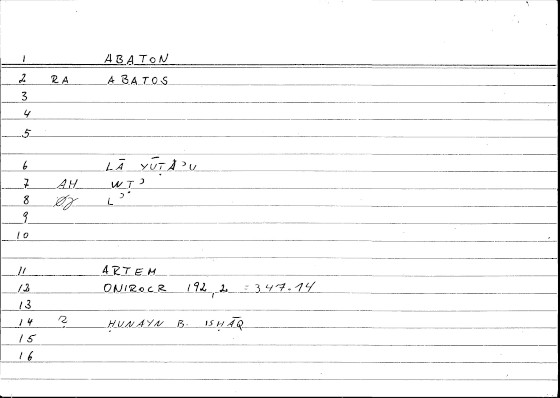 1 ABATON
2 RA ABATOS
3
4
5
6 LĀ YŪṬAʾU
7 AH WṬʾ
8 Lʾ
9
10
11 ARTEM
12 ONIROCR 192,2 =347.14
13
14 2 ḤUNAYN B. ISḤĀQ
15
16